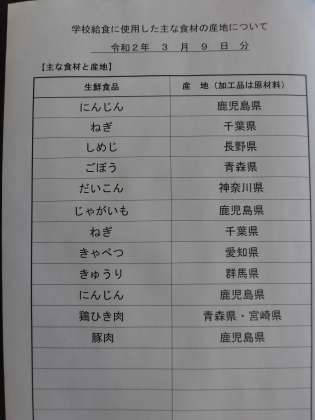 学校給食に使用した主な食材の産地について
令和２年　３　月　９　日　分
【主な食材と産地】
生鮮食品　産　地（加工品は原材料）
にんじん　鹿児島県
ねぎ　千葉県
しめじ　長野県
ごぼう　青森県
だいこん　神奈川県
じゃがいも　鹿児島県
ねぎ　千葉県
きゃべつ　愛知県
きゅうり　群馬県
にんじん　鹿児島県
鶏ひき肉　青森県・宮崎県
豚肉　鹿児島県